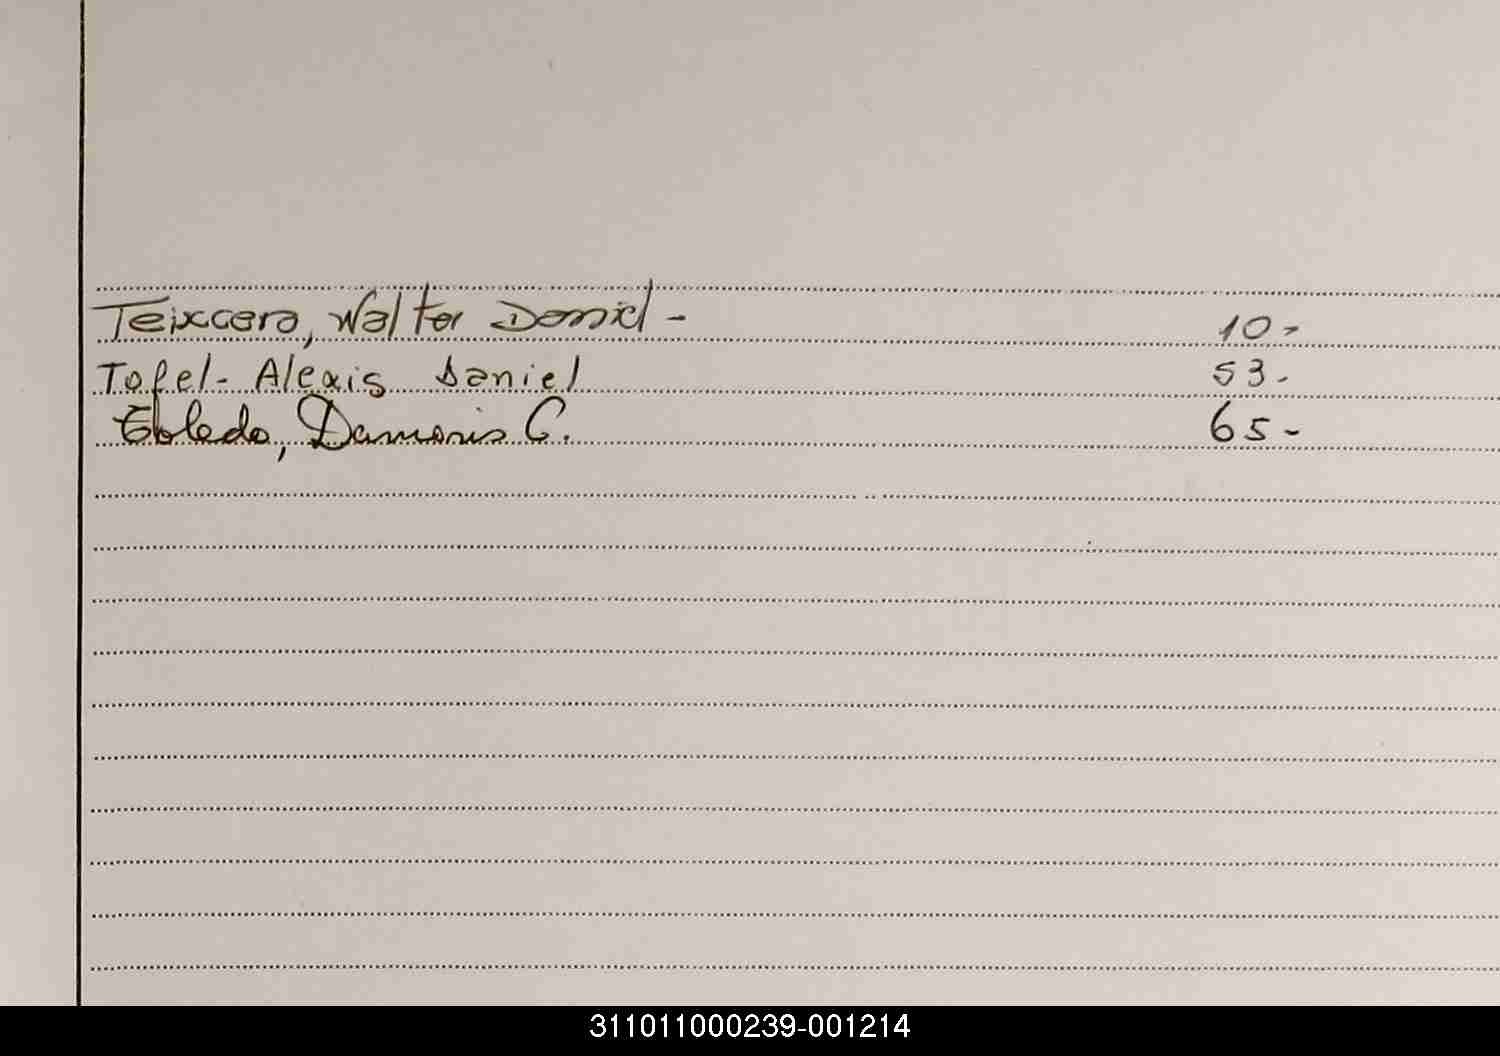 Teixeera, Walter Daniel - 10-
Tofel - Alexis Daniel 53-
Toledo, Damaris C. 65-
311011000239-001214